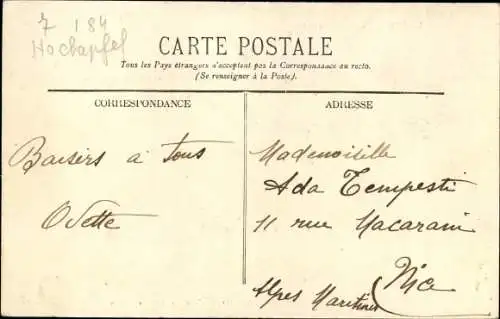 7 184
Hochapfel
CARTE POSTALE
Tous les Pays étrangers n'acceptent pas la Correspondance au recto.
(Se renseigner à la Poste).
CORRESPONDANCE
ADRESSE
Baisers à tous
Odette
Mademoiselle
Ada Tempesti
11 rue Macarani
Nice
Alpes Maritimes